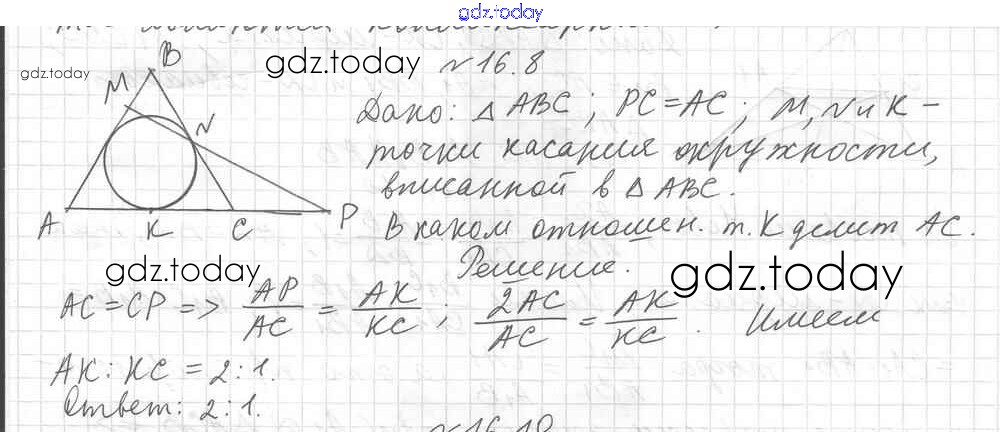 gdz.today
gdz.today
gdz.today
№16.8
B
M
N
A
K
C
P
Дано: △ABC; PC=AC; M, N и K –
точки касания окружности,
вписанной в △ABC.
В каком отношен. т. K делит AC.
gdz.today
Решение.
gdz.today
AC = CP => AP/AC = AK/KC; 2AC/AC = AK/KC. Имеем
AK : KC = 2 : 1.
Ответ: 2 : 1.
№16.10